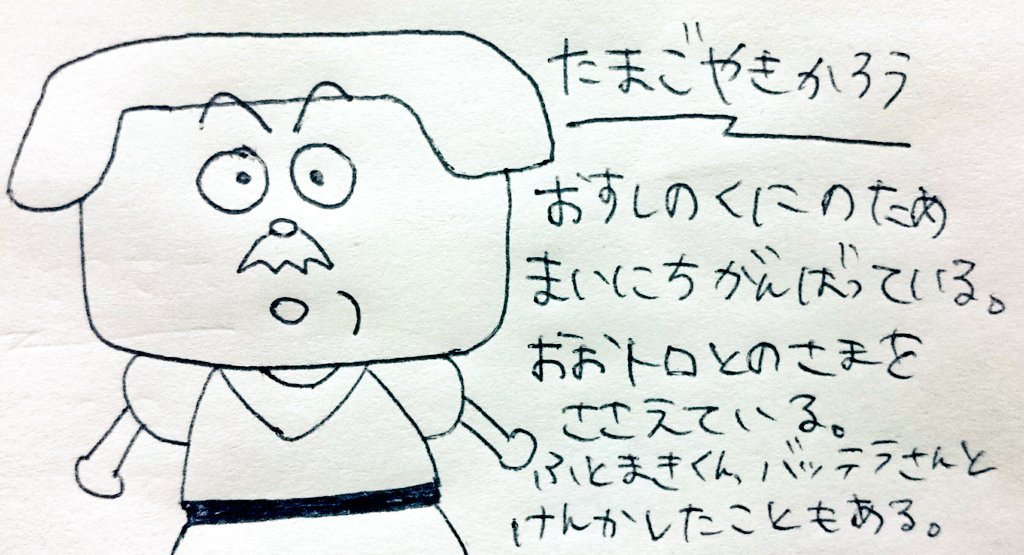 たまごやきかろう
おすしのくにのため
まいにちがんばっている。
おおトロとのさまを
ささえている。
ふとまきくん、バッテラさんと
けんかしたこともある。